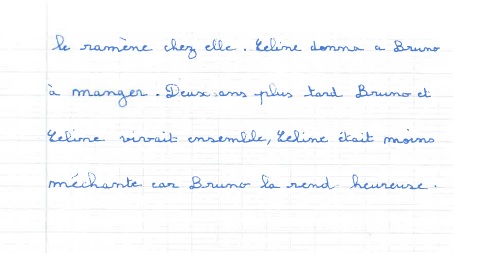 le ramène chez elle. Zeline donna a Bruno
à manger. Deux ans plus tard Bruno et
Zeline vivait ensemble, Zeline était moins
méchante car Bruno la rend heureuse.